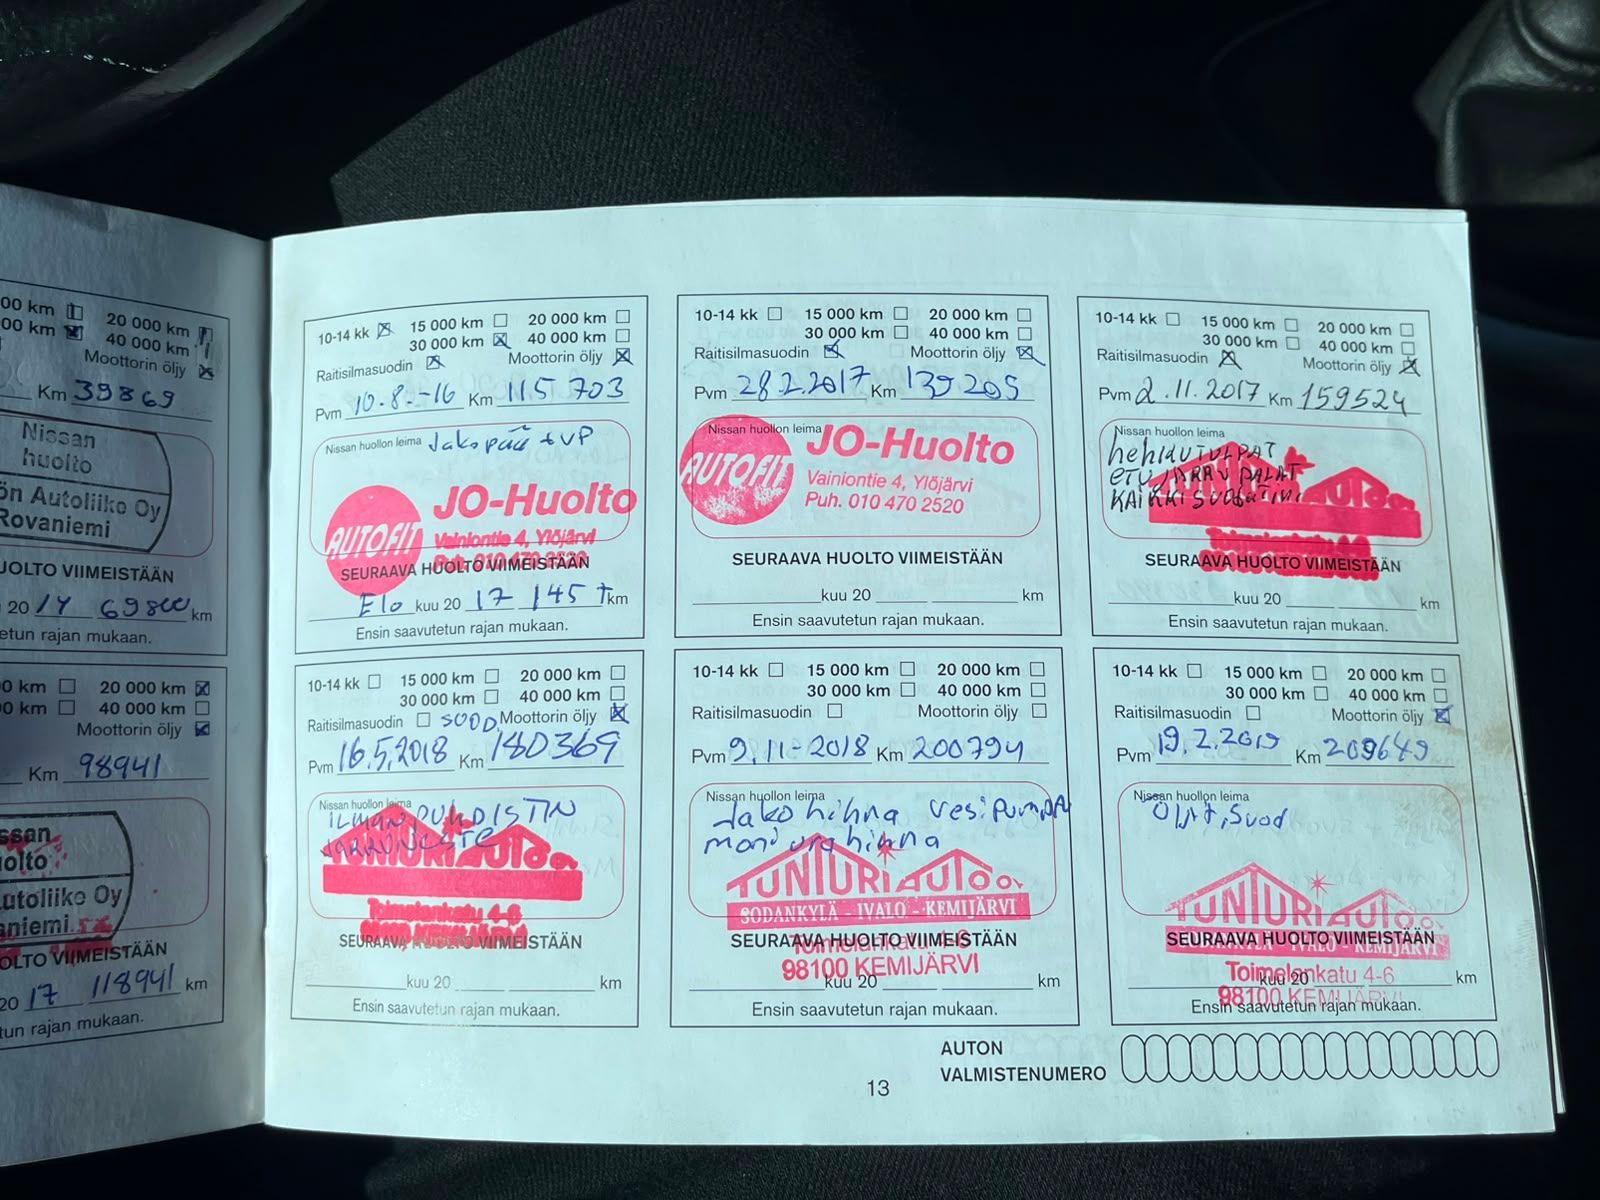 00 km 20 000 km
00 km 40 000 km
Moottorin öljy
Km 39869
Nissan
huolto
ön Autoliike Oy
Rovaniemi
UOLTO VIIMEISTÄÄN
20 14 69800 km
etun rajan mukaan.
0 km 20 000 km
0 km 40 000 km
Moottorin öljy
Km 98941
ssan
olto
Autoliike Oy
aniemi
OLTO VIIMEISTÄÄN
20 17 118941 km
tun rajan mukaan.
10-14 kk 15 000 km 20 000 km
30 000 km 40 000 km
Raitisilmasuodin Moottorin öljy
Pvm 10.8.-16 Km 115 703
Nissan huollon leima Jakopää + VP
AUTOFIT JO-Huolto
Vainiontie 4, Ylöjärvi
Puh. 010 470 2520
SEURAAVA HUOLTO VIIMEISTÄÄN
Elo kuu 20 17 145 t km
Ensin saavutetun rajan mukaan.
10-14 kk 15 000 km 20 000 km
30 000 km 40 000 km
Raitisilmasuodin Moottorin öljy
Pvm 28.2.2017 Km 139205
Nissan huollon leima
AUTOFIT JO-Huolto
Vainiontie 4, Ylöjärvi
Puh. 010 470 2520
SEURAAVA HUOLTO VIIMEISTÄÄN
kuu 20 km
Ensin saavutetun rajan mukaan.
10-14 kk 15 000 km 20 000 km
30 000 km 40 000 km
Raitisilmasuodin Moottorin öljy
Pvm 2.11.2017 Km 159524
Nissan huollon leima
hehkutulpat
etujarrupalat
kaikki suodatin
Toimelankatu 4-6
SEURAAVA HUOLTO VIIMEISTÄÄN
kuu 20 km
Ensin saavutetun rajan mukaan.
10-14 kk 15 000 km 20 000 km
30 000 km 40 000 km
Raitisilmasuodin suod. Moottorin öljy
Pvm 16.5.2018 Km 180369
Nissan huollon leima
ILMANPUHDISTIN
JARRUNESTE
TUNTURIAUTO OY
Toimelankatu 4-6
SEURAAVA HUOLTO VIIMEISTÄÄN
kuu 20 km
Ensin saavutetun rajan mukaan.
10-14 kk 15 000 km 20 000 km
30 000 km 40 000 km
Raitisilmasuodin Moottorin öljy
Pvm 9.11-2018 Km 200794
Nissan huollon leima
Jakohihna vesipumppu
moniurahihna
TUNTURIAUTO OY
SODANKYLÄ - IVALO - KEMIJÄRVI
SEURAAVA HUOLTO VIIMEISTÄÄN
Toimelankatu 4-6
98100 KEMIJÄRVI
kuu 20 km
Ensin saavutetun rajan mukaan.
10-14 kk 15 000 km 20 000 km
30 000 km 40 000 km
Raitisilmasuodin Moottorin öljy
Pvm 19.2.2019 Km 209649
Nissan huollon leima
Öljyt, Suod
TUNTURIAUTO OY
SODANKYLÄ - IVALO - KEMIJÄRVI
SEURAAVA HUOLTO VIIMEISTÄÄN
Toimelankatu 4-6
kuu 20 km
98100 KEMIJÄRVI
Ensin saavutetun rajan mukaan.
AUTON
VALMISTENUMERO
13